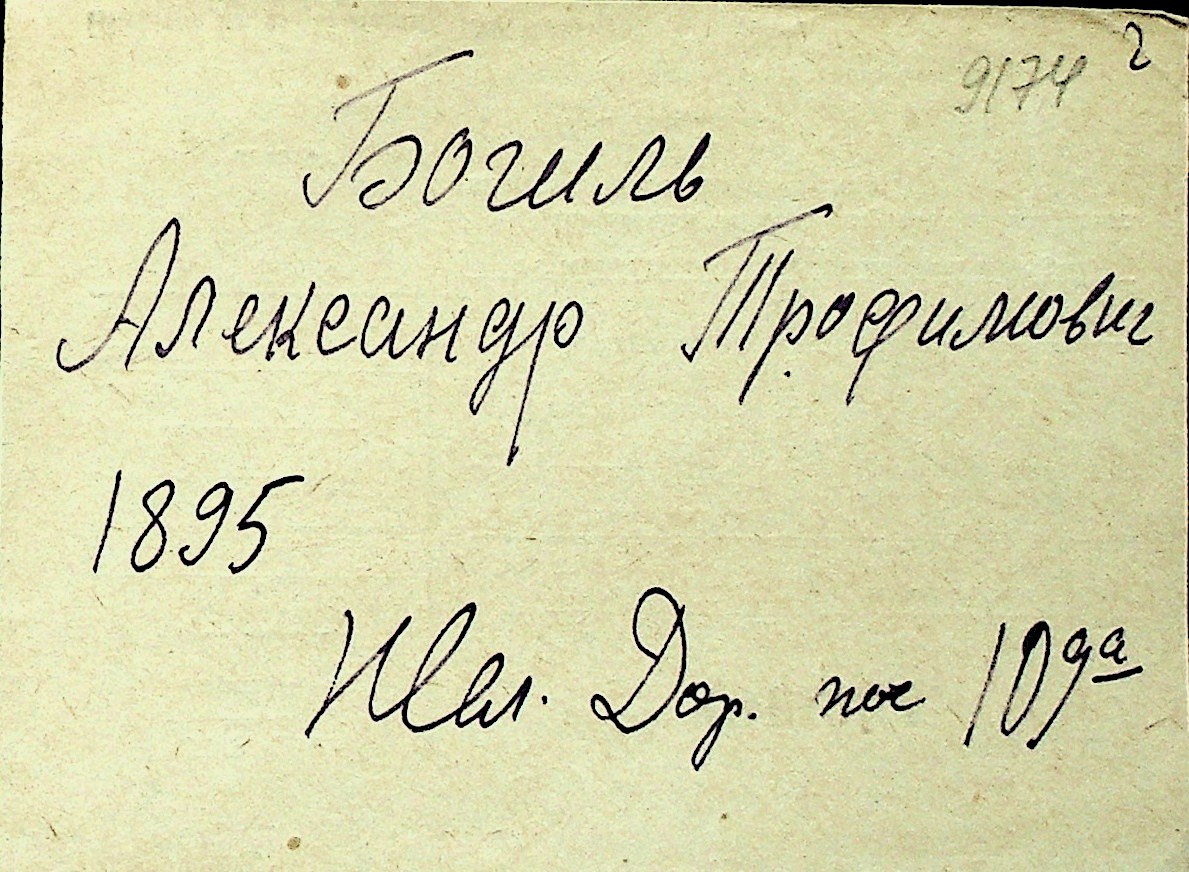 9174 2
Богиль
Александр Трофимович
1895
Дор. 10